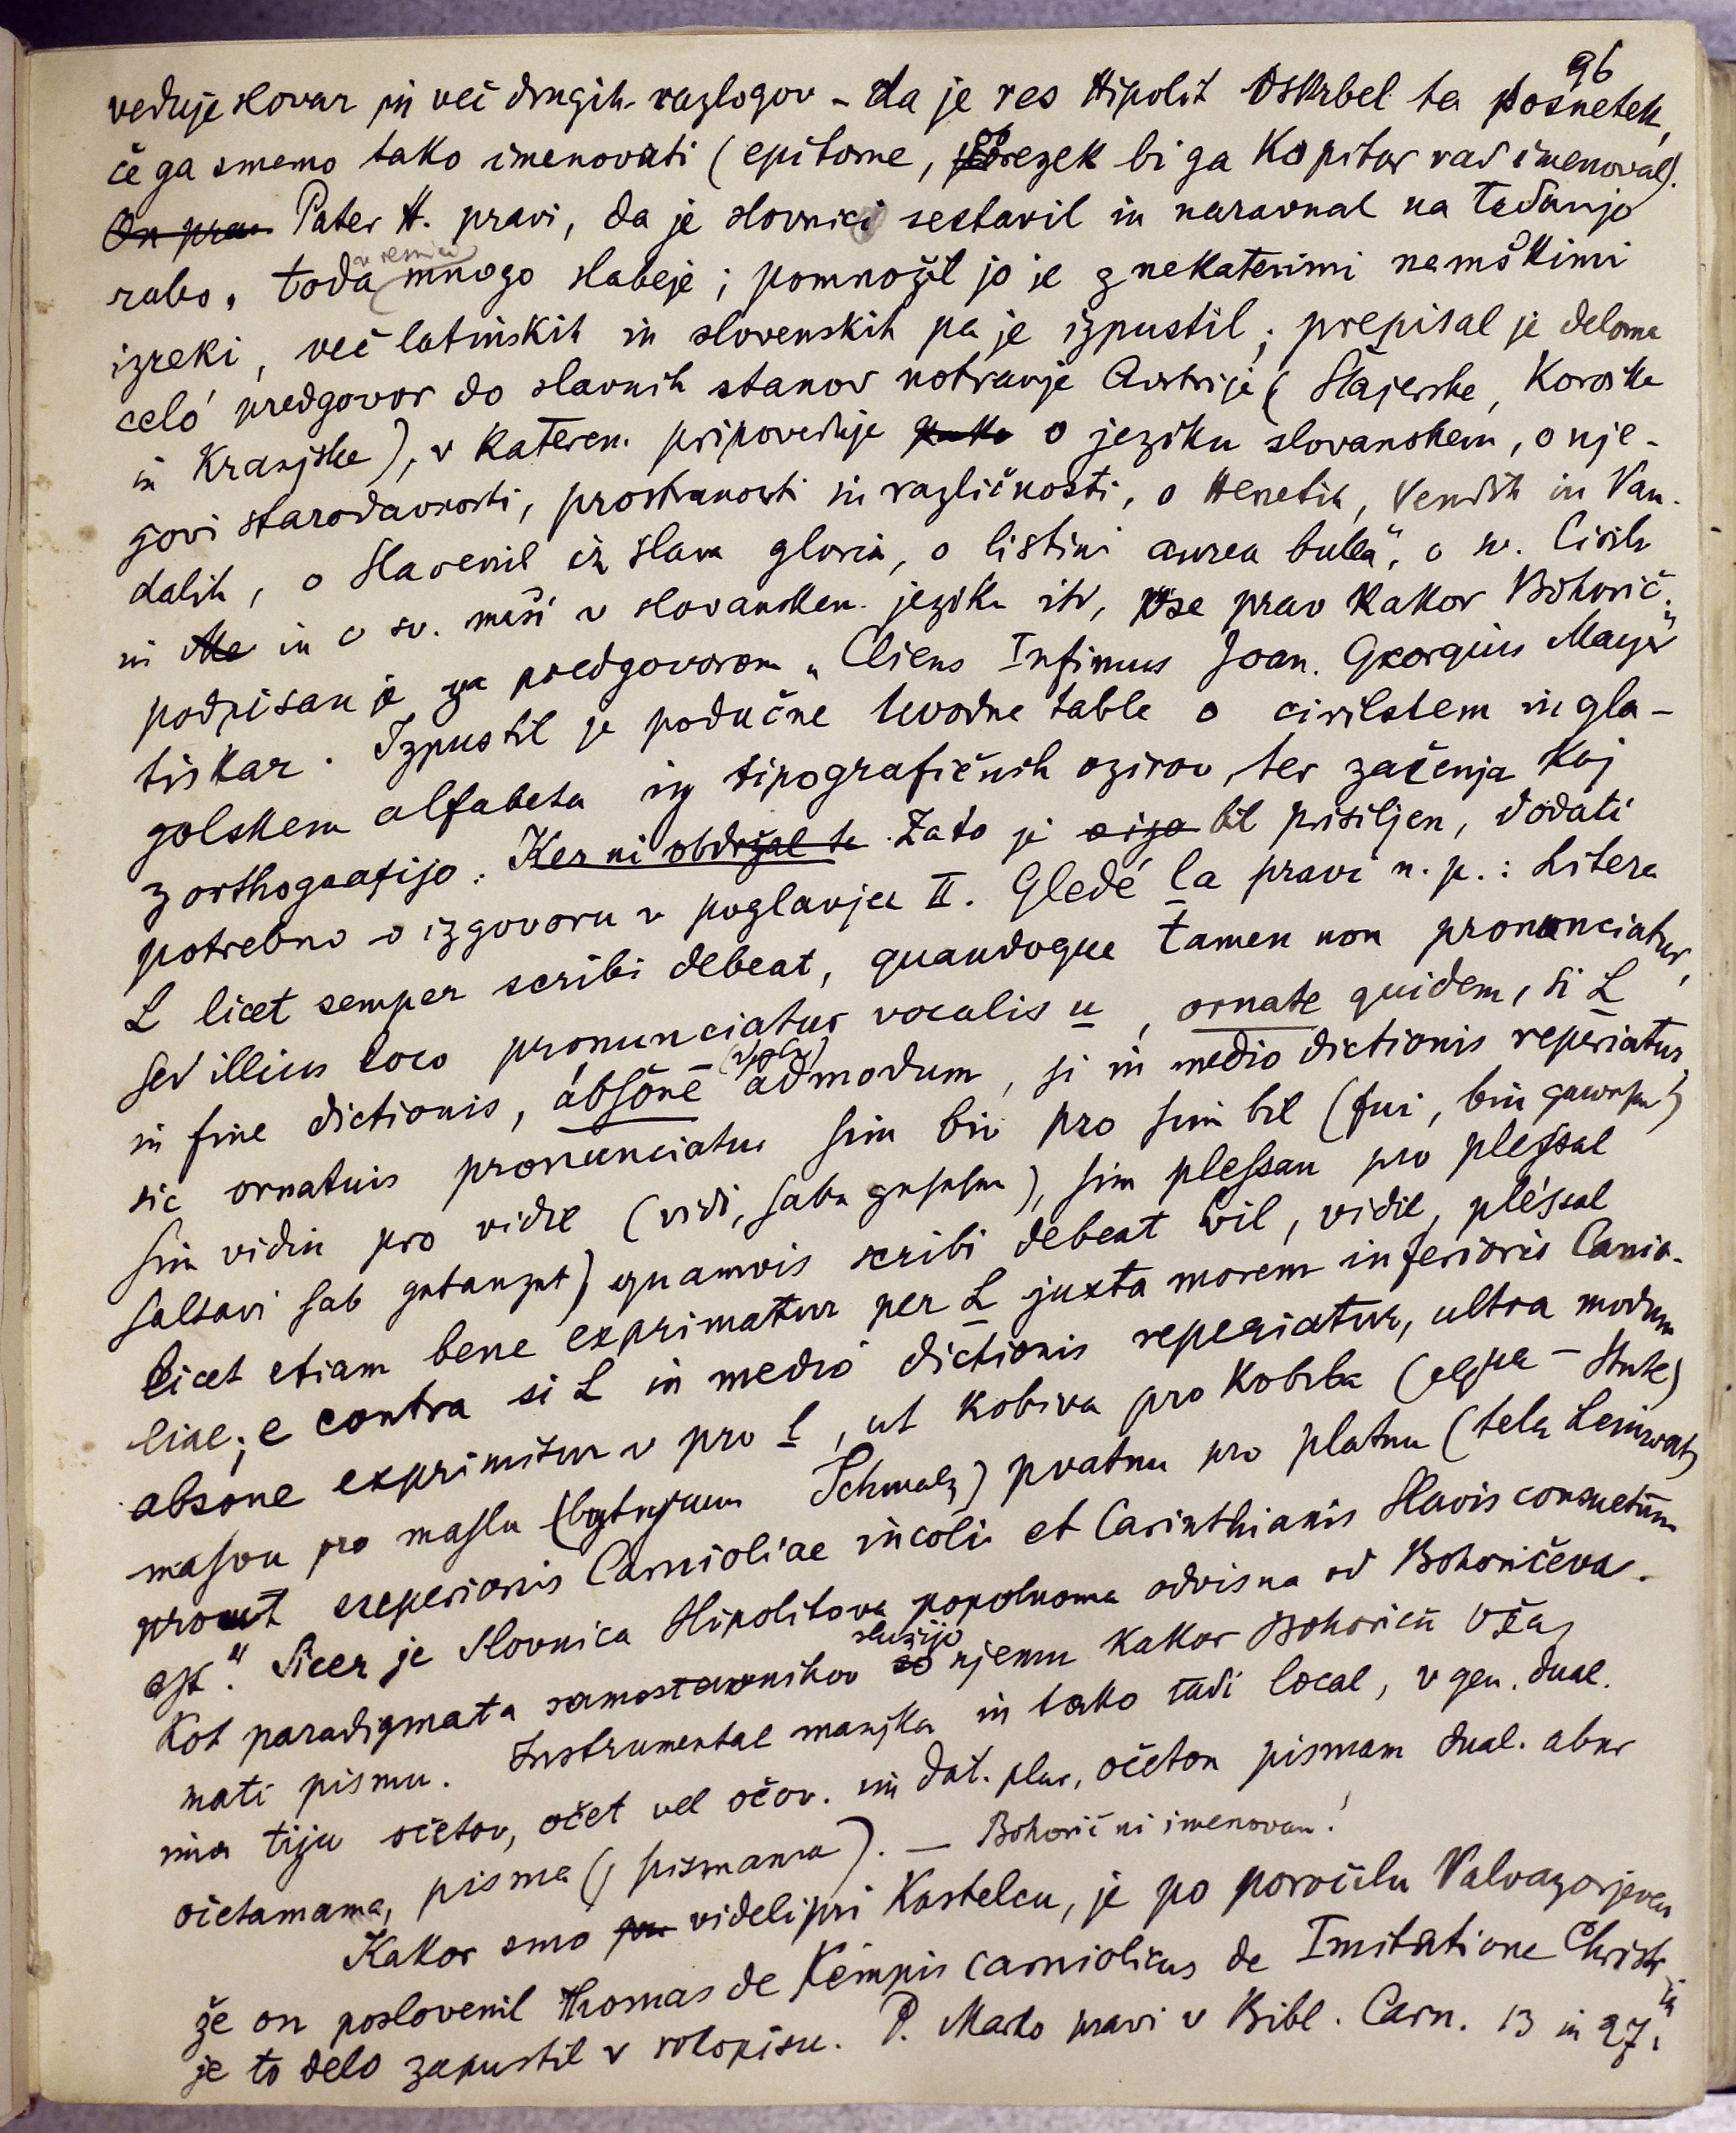 96
veduje slovar in več drugih razlogov - da je res Hipolit oskrbel ta posnetek,
če ga smemo tako imenovati (epitome, obrezek bi ga Kopitar rad imenoval).
On prav Pater H. pravi, da je slovnici sestavil in naravnal na tedanjo
rabo, toda v resnici mnogo slabeje; pomnožil jo je z nekaterimi nemškimi
izreki, več latinskih in slovenskih pa je izpustil; prepisal je deloma
celó predgovor do slavnih stanov notranje Avstrije (Štajerske, Koroške
in Kranjske), v katerem pripoveduje o jeziku slovanskem, o nje-
govi starodavnosti, prostranosti in različnosti, o Henetih, Vendih in Van-
dalih, o Slavenih iz slava gloria, o listini aurea bulla", o sv. Cirilu
in Me in o sv. maši v slovanskem jeziku itd, vse prav kakor Bohorič;
podpisan je za predgovorom „Cliens Infimus Joan. Georgius Mayr"
tiskar. Izpustil je podučne uvodne table o cirilskem in gla-
golskem alfabetu iz tipografičnih ozirov, ter začenja koj
z orthografijo. Ker ni obdržal te Zato je bil prisiljen, dodati
potrebno o izgovoru v poglavju II. Gledé la pravi n. p.: Litera
L licet semper scribi debeat, quandoque tamen non pronunciatur,
sed illius loco pronunciatur vocalis u, ornate quidem, si L
in fine dictionis, absone admodum, si in medio dictionis reperiatur,
sic ornatuis pronunciatur sim biu pro sim bil (fui, bin gewesen)
sim vidiu pro vidil (vidi, habe gesehen), sim plessau pro plessal
saltavi hab getanzet) quamvis scribi debeat bil, vidil, plessal
licet etiam bene exprimatur per L juxta morem inferioris Carnio-
liae; e contra si L in medio dictionis reperiatur, ultra modum
absone exprimitur v pro l, ut kobiva pro kobila (equa - Stute)
masvu pro maslu (butyrum Schmalz) pvatnu pro platnu (tela Leinwat)
prout superioris Carnioliae incolis et Carinthianis Slavis consuetum
est." Sicer je Slovnica Hipolitova popolnoma odvisna od Bohoričeva.
Kot paradigmata samostavnikov so služijo njemu kakor Bohoriču Oža,
mati pismu. Instrumental manjka in tako tudi local, v gen. dual.
ima tiju očetov, očet vel očov. in dat. plur, očetom pismam dual. abur
očetamama, pisma (j pismama). — Bohorič ni imenovan!
Kakor smo videli pri Kastelcu, je po poročilu Valvazorjevem
že on poslovenil Thomas de Kempis carniolicus de Imitatione Christi in
je to delo zapustil v rokopisu. P. Marko pravi v Bibl. Carn. 13 in 27,